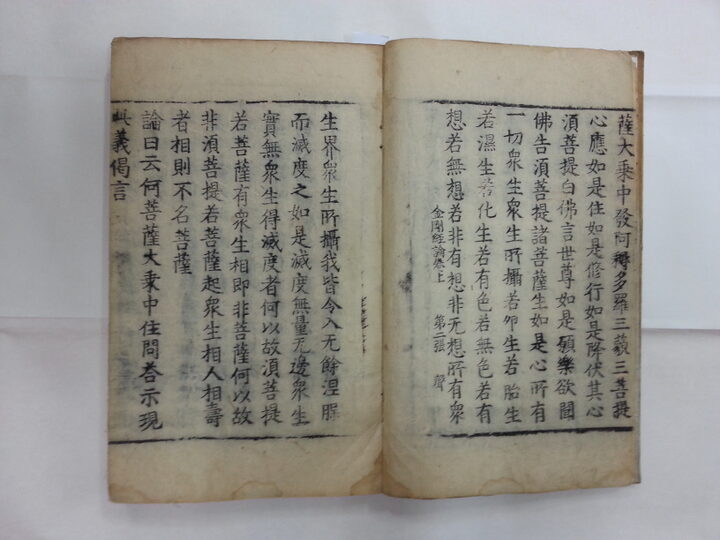 薩大乗中發阿耨多羅三藐三菩提
心應如是住如是修行如是降伏其心
須菩提白佛言世尊如是願樂欲聞
佛告須菩提諸菩薩生如是心所有
一切衆生衆生所攝若卵生若胎生
若濕生若化生若有色若無色若有
想若無想若非有想非无想所有衆
金剛經論卷上 第二張
生界衆生所攝我皆令入无餘涅槃
而滅度之如是滅度無量无邊衆生
實無衆生得滅度者何以故須菩提
若菩薩有衆生相即非菩薩何以故
非須菩提若菩薩起衆生相人相壽
者相則不名菩薩
論曰云何菩薩大乗中住問荅示現
此義偈言